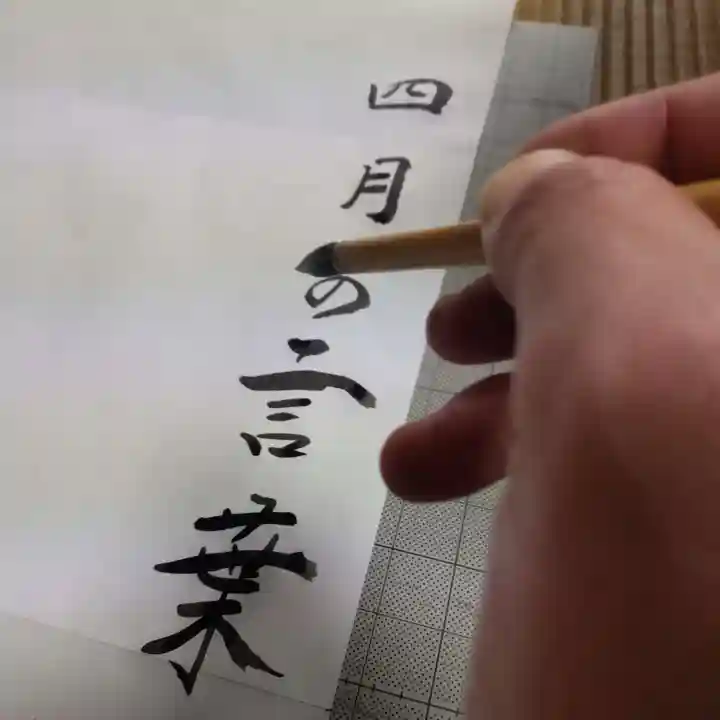 四月の言葉